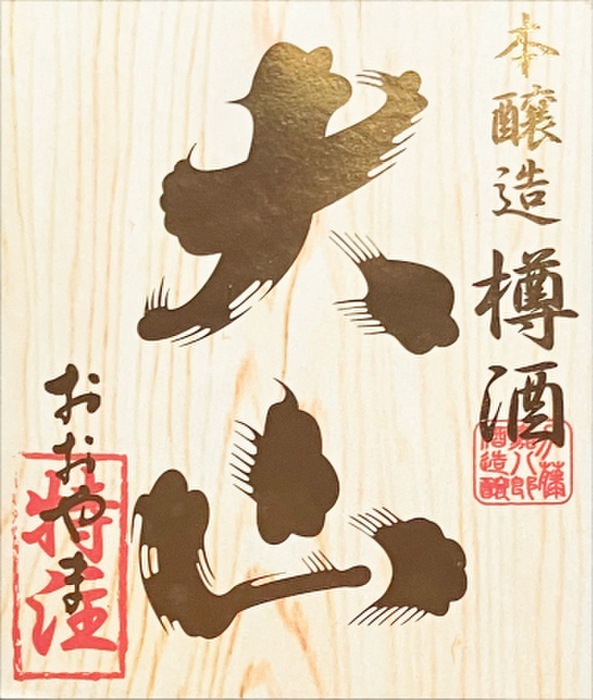 本醸造 樽酒
加藤
嘉八郎
酒造醸
大山
おおやま
特注